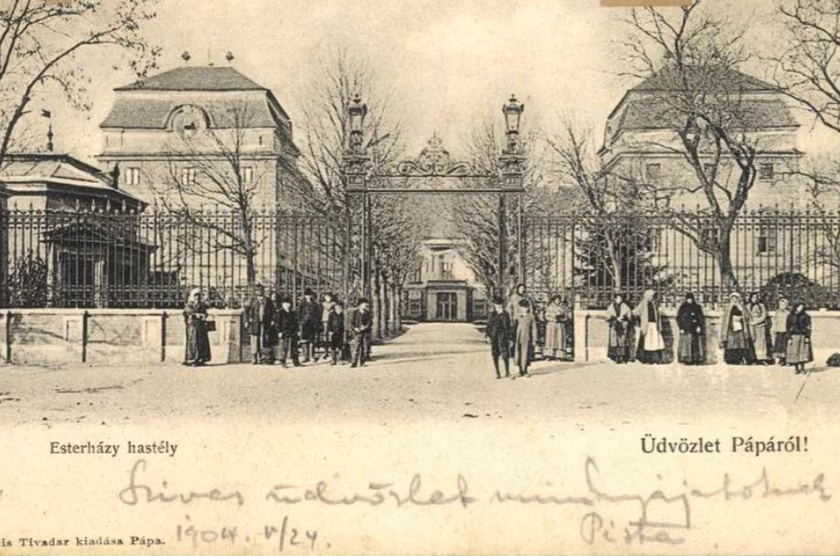 Esterházy hastély
Üdvözlet Pápáról!
Szives üdvözlet mindnyájatoknak
is Tivadar kiadása Pápa.
1904. V/24.
Pista